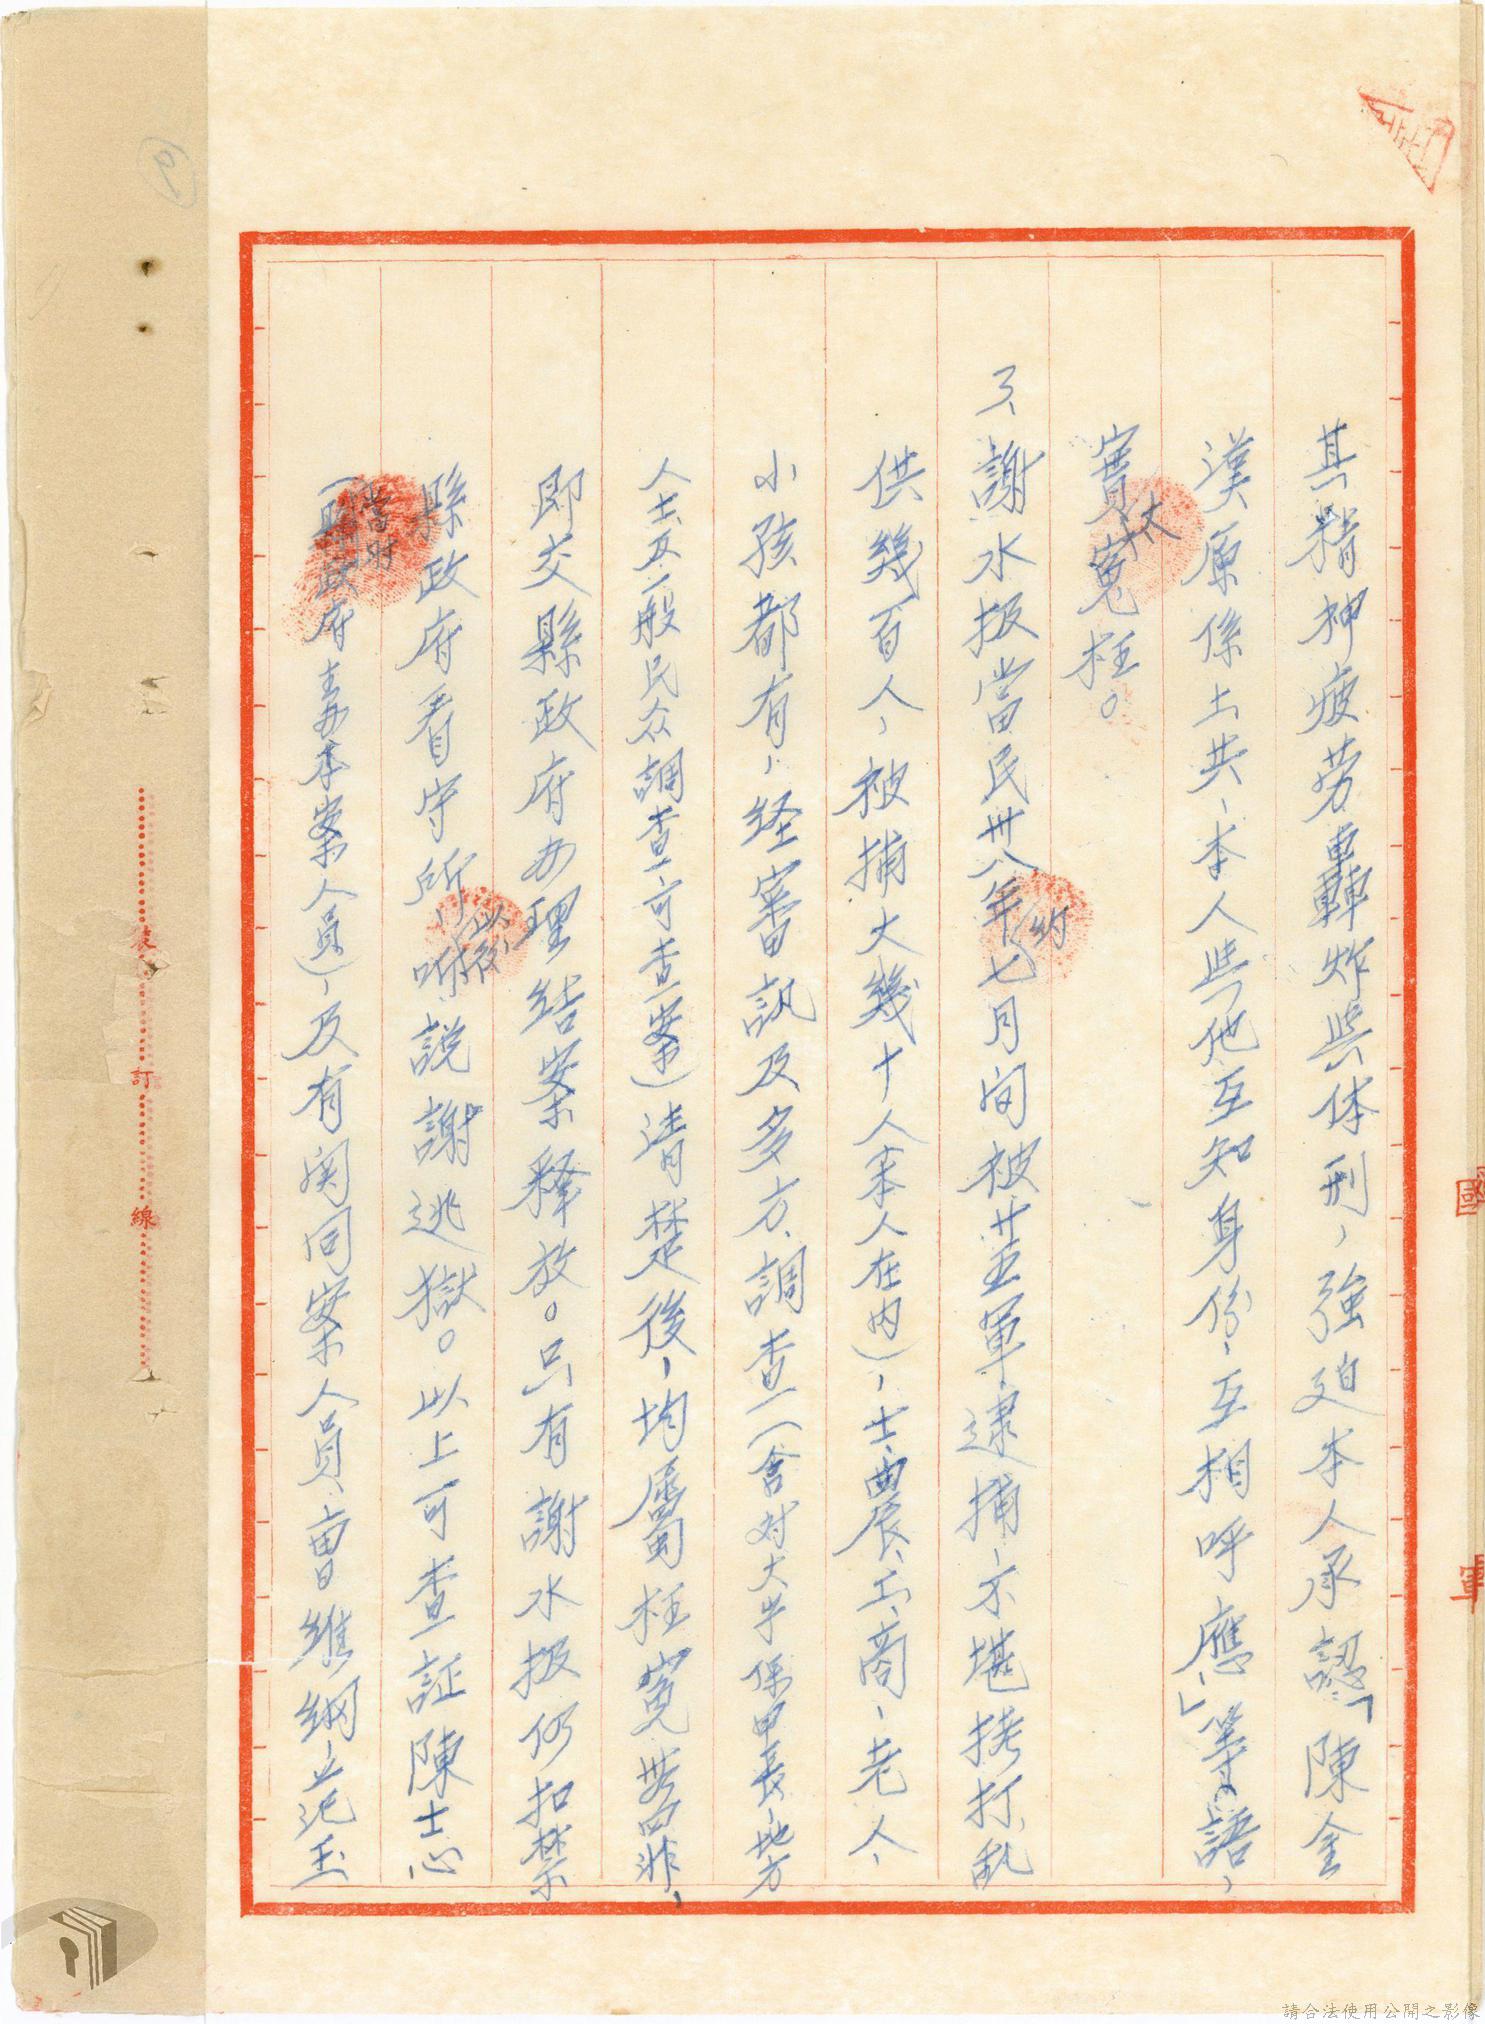 其精神疲劳轟炸与体刑，強迫本人承認「陳金
漢原係土共，本人与他互知身份，互相呼應」等語，
實太冤枉。
3、謝水扱當民卅八年約七月间被葉軍逮捕，不堪拷打，乱
供幾百人，被捕大幾十人（本人在内），士、農、工、商，老人、
小孩都有，経審訊及多方調查（含对大半保甲長、地方
人士及一般民众調查，可查案）清楚後，均屬枉冤無罣非，
即交縣政府办理结案释放。只有謝水扱仍扣禁
縣政府看守所，以後听説謝逃獄。以上可查証陳士心
（當时縣政府主办本案人員），及有関同案人員曹維綱、立范玉
裝
訂
線
9
國
軍
請合法使用公開之影像